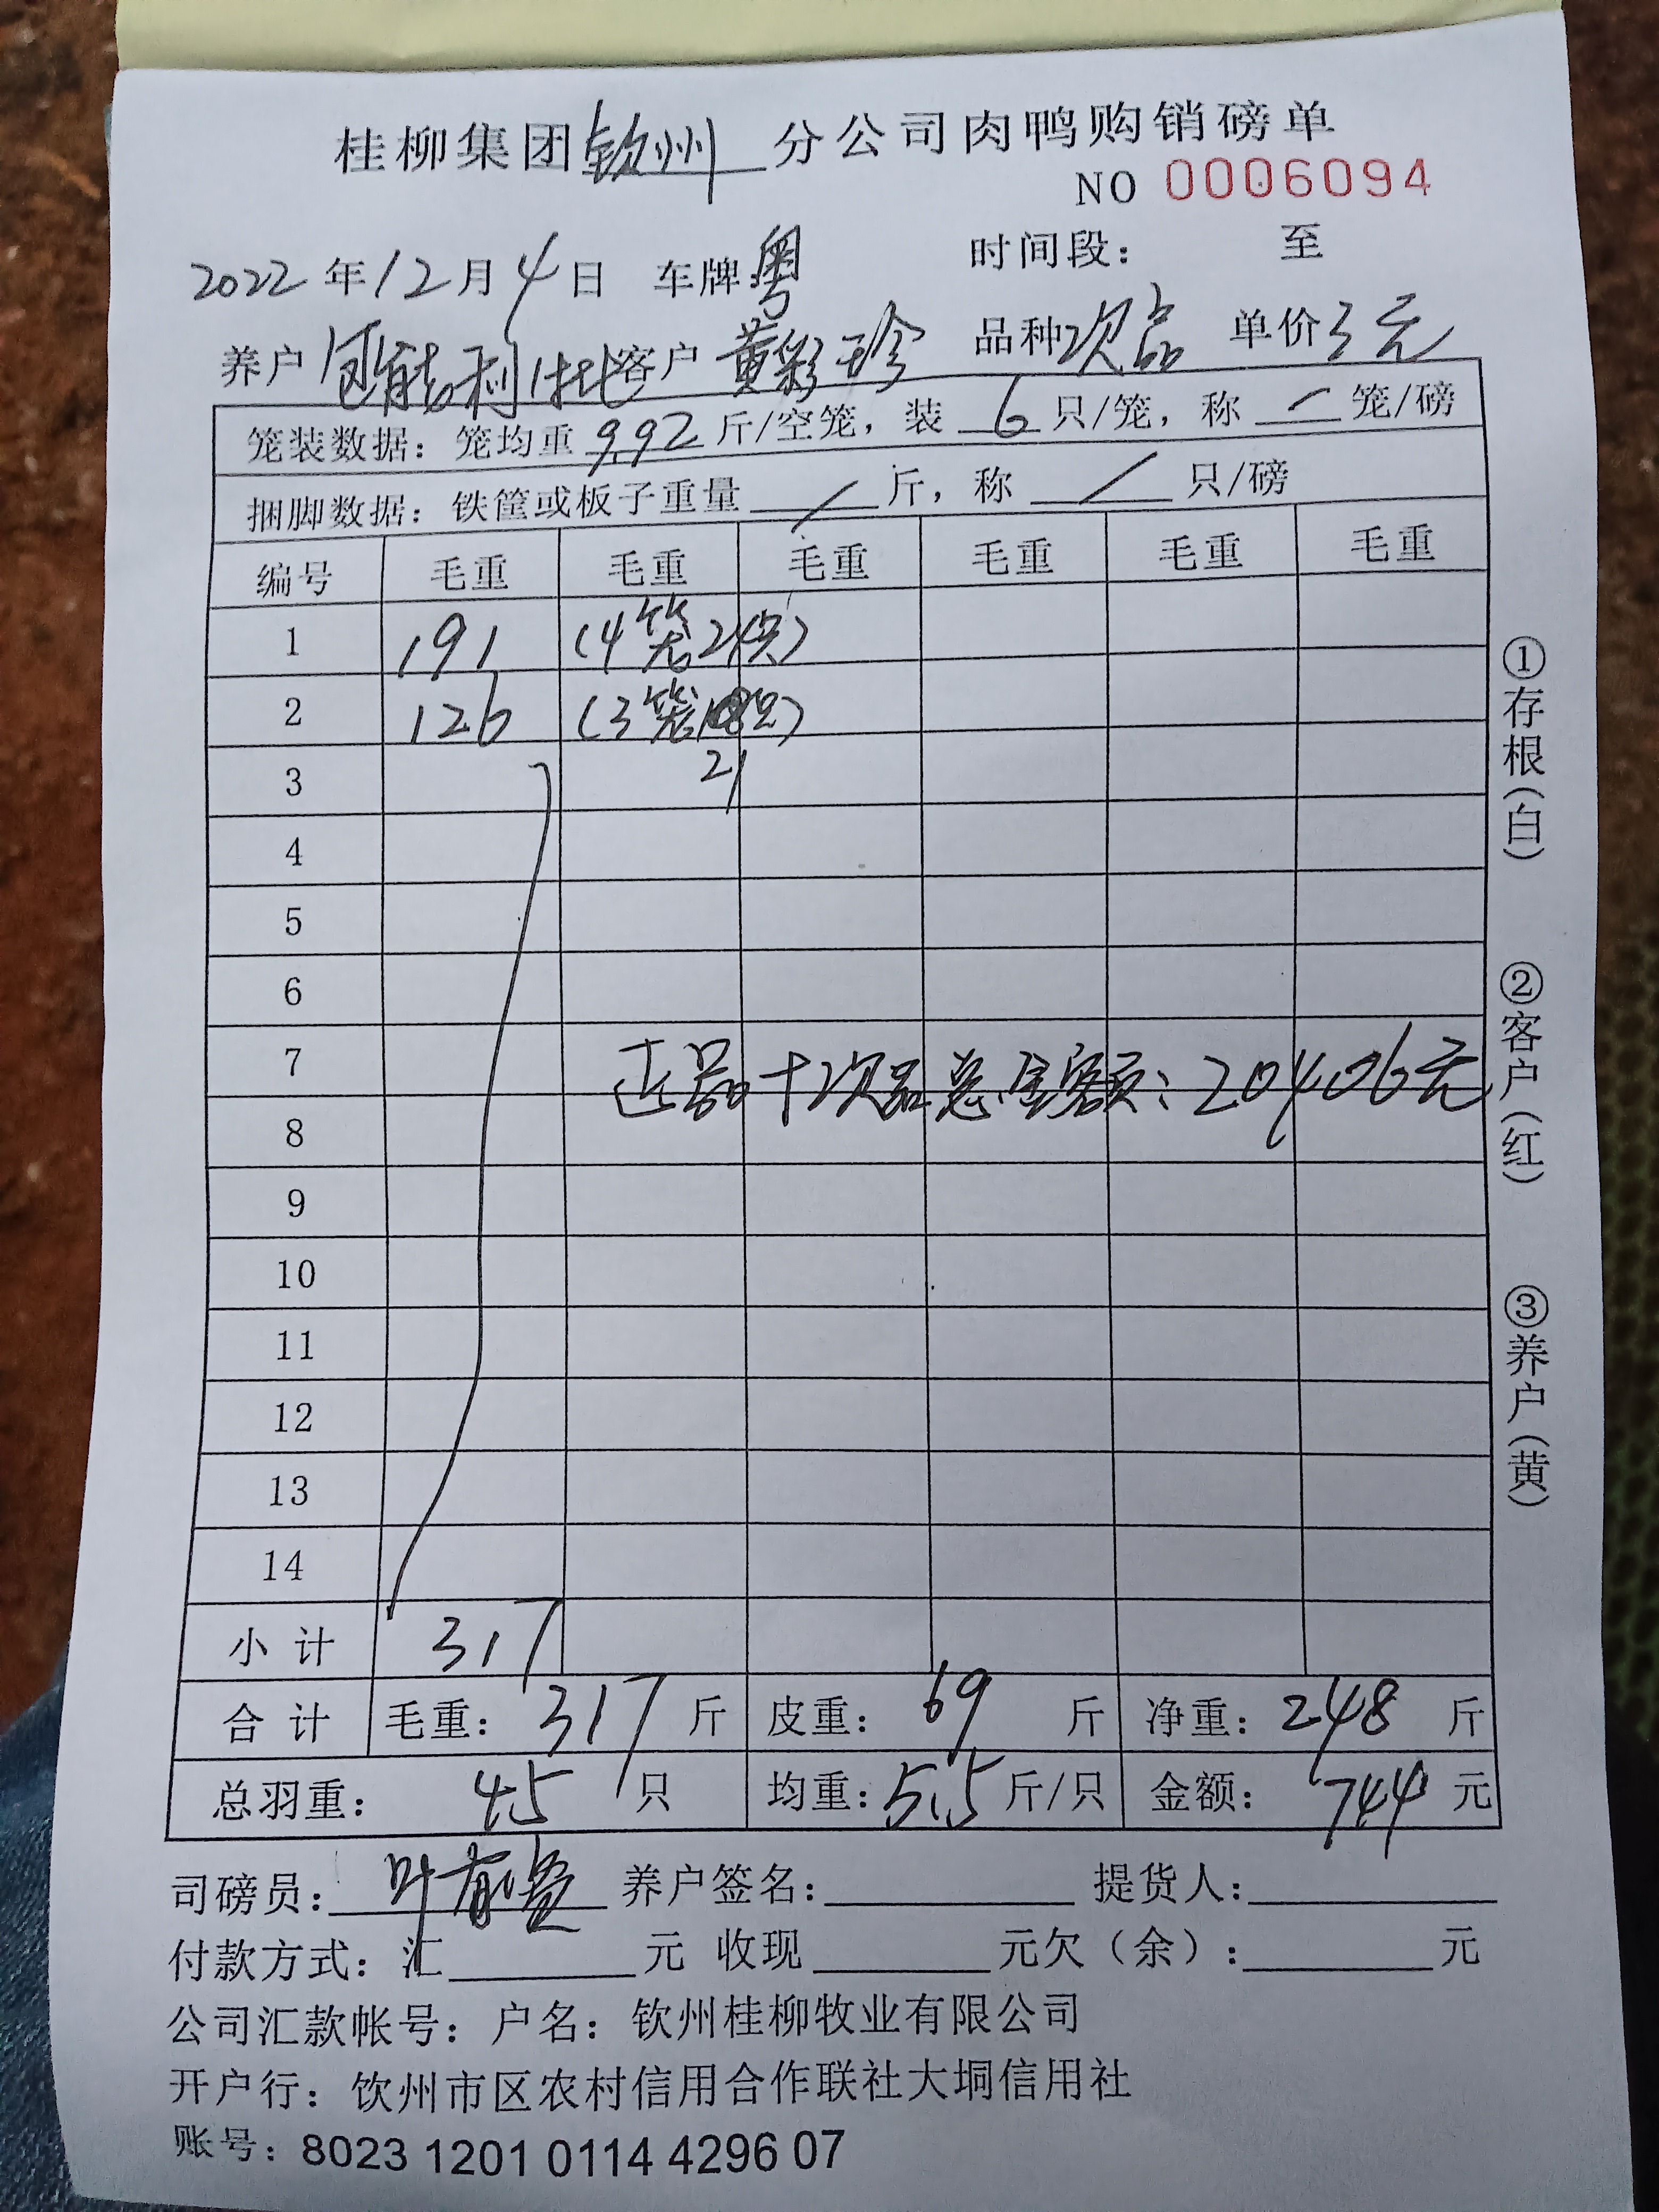 桂柳集团钦州分公司肉鸭购销磅单
NO 0006094
时间段: 至
2022年12月4日 车牌:粤
养户 利 客户 黄彩珍 品种次品 单价3元
笼装数据: 笼均重 9.92 斤/空笼, 装 6 只/笼, 称 / 笼/磅
捆脚数据: 铁筐或板子重量 / 斤, 称 / 只/磅
编号 毛重 毛重 毛重 毛重 毛重 毛重
1 191 (4笼24只)
2 126 (3笼只)
3 21
4
5
6
7
正品+次品总金额: 20406元
8
9
10
11
12
13
14
小计 317
合计 毛重: 317 斤 皮重: 69 斤 净重: 248 斤
总羽重: 45 只 均重: 5.5 斤/只 金额: 744 元
司磅员: 叶 养户签名: 提货人:
付款方式: 汇 元 收现 元欠(余): 元
公司汇款帐号: 户名: 钦州桂柳牧业有限公司
开户行: 钦州市区农村信用合作联社大垌信用社
账号: 8023 1201 0114 4296 07
①存根(白)
②客户(红)
③养户(黄)